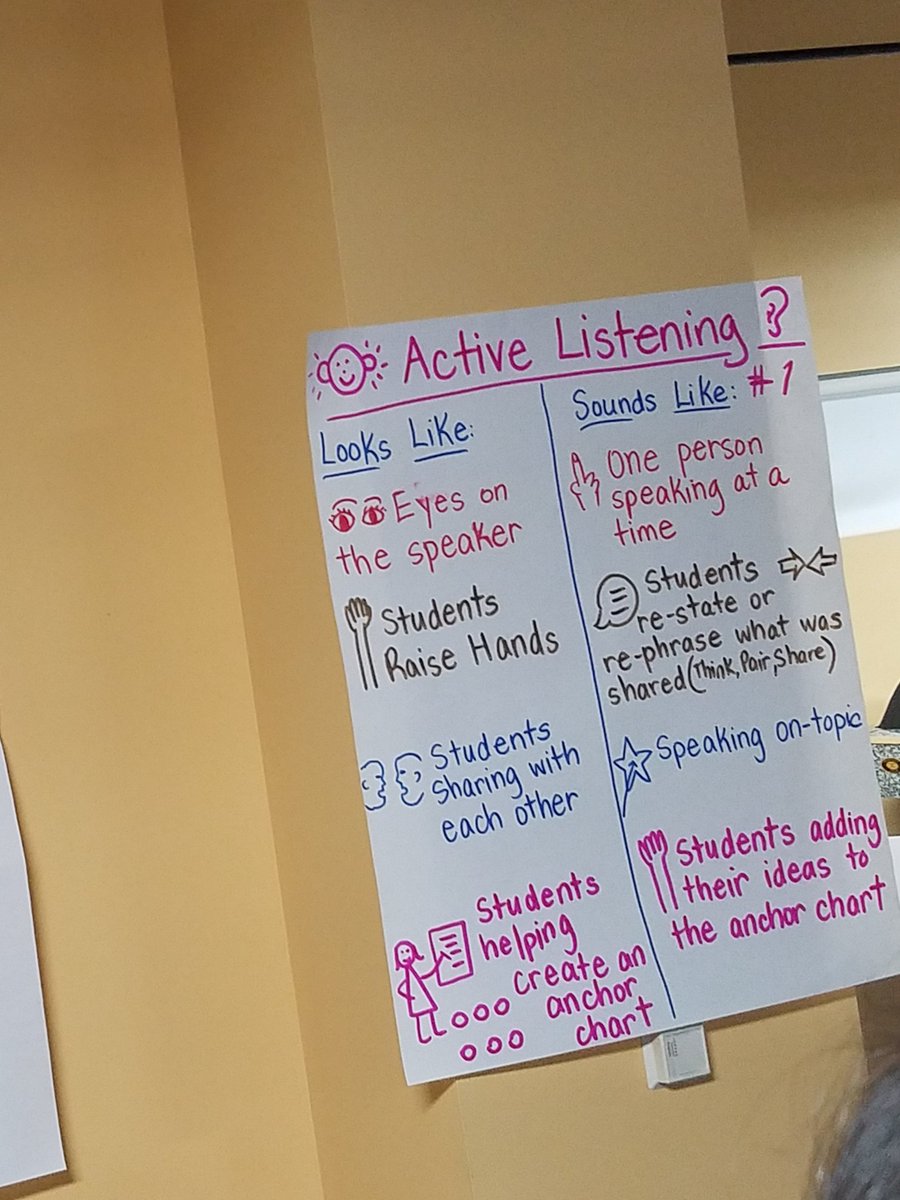 Active Listening
Looks Like:
Eyes on
the speaker
Students
Raise Hands
Students
Sharing with
each other
Students
helping
create an
anchor
chart
Sounds Like: #1
One person
speaking at a
time
Students
re-state or
re-phrase what was
shared (Think, Pair, Share)
Speaking on-topic
Students adding
their ideas to
the anchor chart